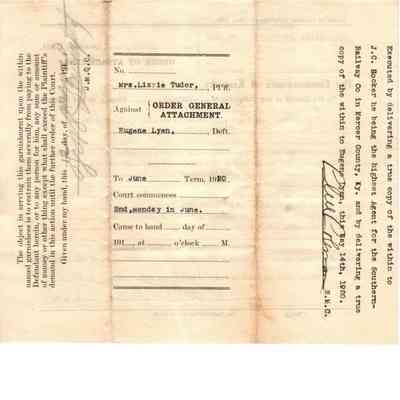 The object in serving this garnishment upon the within
named garnishees is to restrain them severally from paying to the
Defendant herein, or to any person for him, any sum or amount
of money or other thing except what shall exceed the Plaintiff's
demand in this action until the further order of this Court.
Given under my hand, this the day of 191
No.
Mrs. Lizzie Tudor, Pl'ff.
Against ORDER GENERAL
ATTACHMENT.
Eugene Lyan, Deft.
To June Term, 1920
Court commences
2nd, monday in June.
Came to hand day of
191 , at o'clock M.
Executed by delivering a true copy of the within to
J.C. Hocker he being the highest Agent for the Southern-
Railway Co in Mercer County, Ky. and by delivering a true
copy of the within to Eugene Lyan, this May 14th, 1920.
S.M.C.